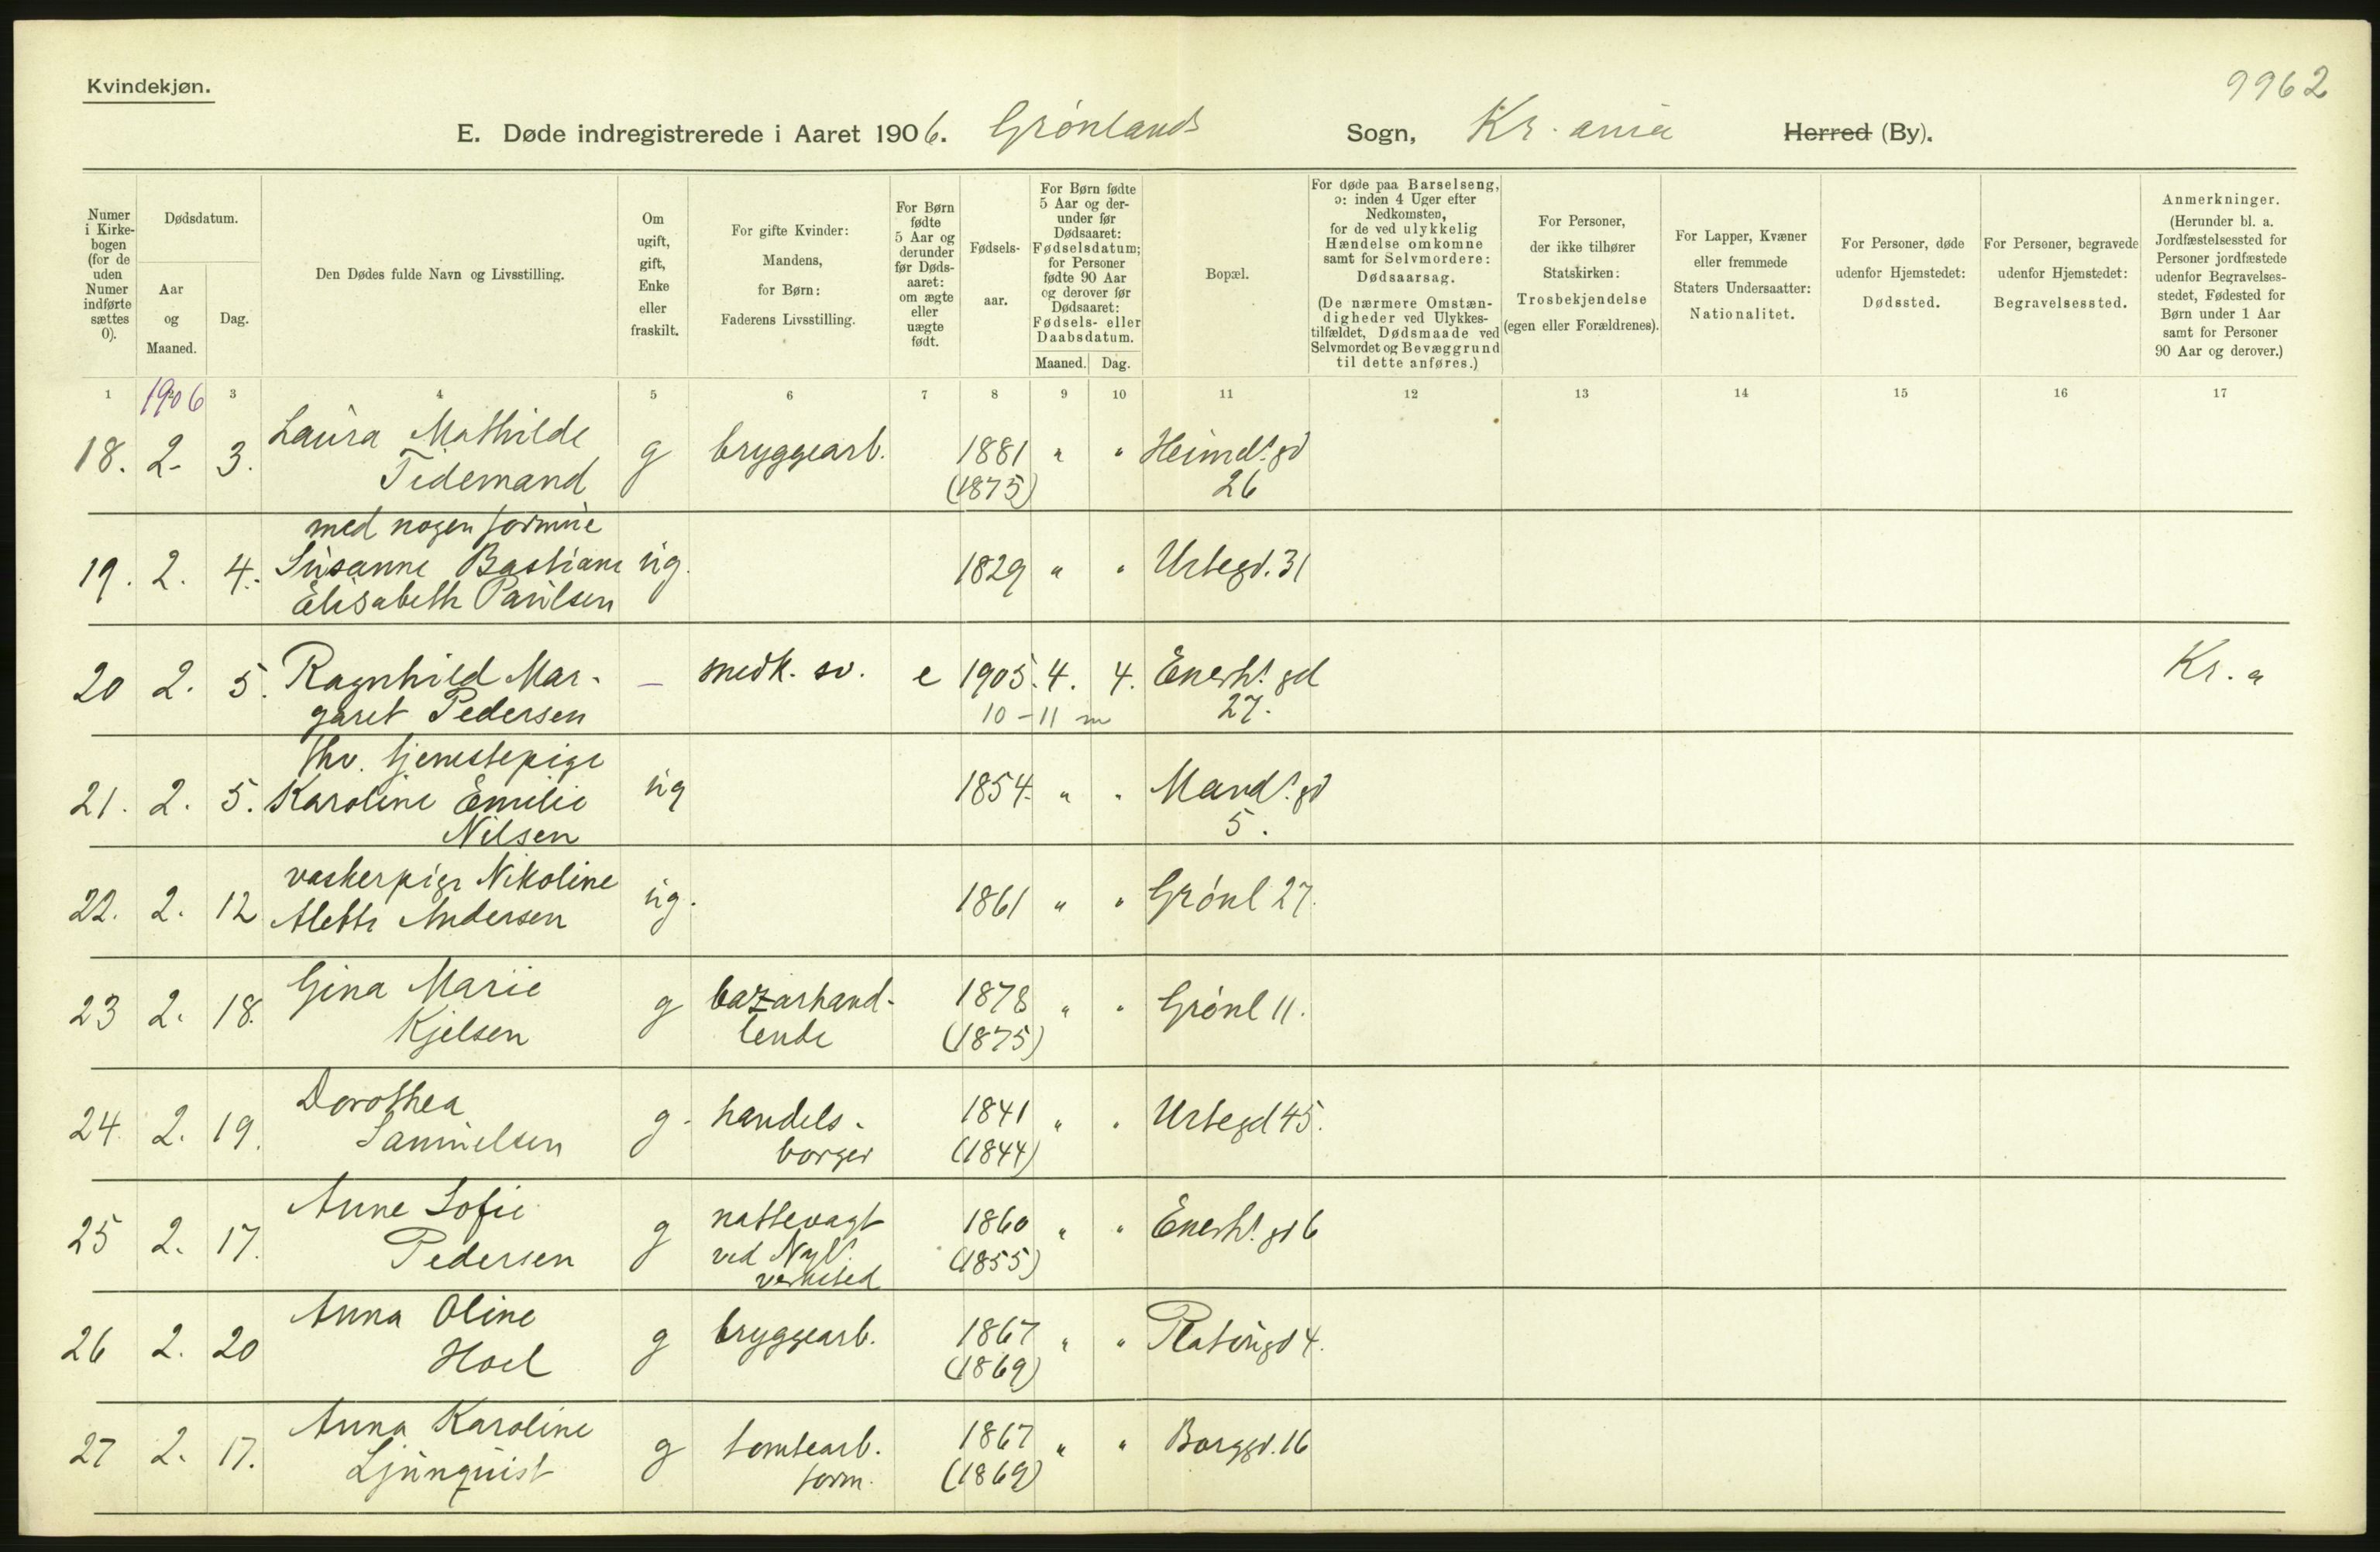 Kvindekjøn.
9962
E. Døde indregistrerede i Aaret 1906. Grønlands Sogn, Kr.ania Herred (By).
Numer i Kirkebogen (for de uden Numer indførte sættes 0).
Dødsdatum.
Aar og Maaned.
Dag.
Den Dødes fulde Navn og Livsstilling.
Om ugift, gift, Enke eller fraskilt.
For gifte Kvinder: Mandens, for Børn: Faderens Livsstilling.
For Børn fødte 5 Aar og derunder før Dødsaaret: om ægte eller uægte født.
Fødselsaar.
For Børn fødte 5 Aar og derunder før Dødsaaret: Fødselsdatum; for Personer fødte 90 Aar og derover før Dødsaaret: Fødsels- eller Daabsdatum.
Maaned. Dag.
Bopæl.
For døde paa Barselseng, ɔ: inden 4 Uger efter Nedkomsten, for de ved ulykkelig Hændelse omkomne samt for Selvmordere: Dødsaarsag. (De nærmere Omstændigheder ved Ulykkestilfældet, Dødsmaade ved Selvmordet og Bevæggrund til dette anføres.)
For Personer, der ikke tilhører Statskirken: Trosbekjendelse (egen eller Forældrenes).
For Lapper, Kvæner eller fremmede Staters Undersaatter: Nationalitet.
For Personer, døde udenfor Hjemstedet: Dødssted.
For Personer, begravede udenfor Hjemstedet: Begravelsessted.
Anmerkninger. (Herunder bl. a. Jordfæstelsessted for Personer jordfæstede udenfor Begravelsesstedet, Fødested for Børn under 1 Aar samt for Personer 90 Aar og derover.)
1 1906 3 4 5 6 7 8 9 10 11 12 13 14 15 16 17
18. 2. 3. Laura Mathilde g bryggearb. 1881 " " Heimd.s gd
Tidemand (1875) 26
med nogen formue
19. 2. 4. Susanne Bastiane ug. 1829 " " Urtegd. 31
Elisabeth Paulsen
20 2. 5. Ragnhild Mar- — snedk. sv. e 1905. 4. 4. Enerh. gd Kr. a
garet Pedersen 10-11 m 27.
fhv. tjenestepige
21. 2. 5. Karoline Emilie ug 1854. " " Mand.s gd
Nilsen 5.
vaskerpige Nikoline
22. 2. 12 Alette Andersen ug. 1861 " " Grønl 27.
23 2. 18. Gina Marie g bazarhand- 1878 " " Grønl 11.
Kjelsen lende (1875)
24 2. 19. Dorothea g. handels- 1841 " " Urtegd 45.
Samuelsen borger (1844)
25 2. 17. Anne Sofie g nattevagt 1860 " " Enerh. gd 6
Pedersen ved Nyl. (1855)
verksted
26 2. 20 Anna Oline g bryggearb. 1867 " " Platougd 4.
Hoel (1869)
27 2. 17. Anna Karoline g tomtearb. 1867 " " Borggd. 16
Ljunquist form. (1869)